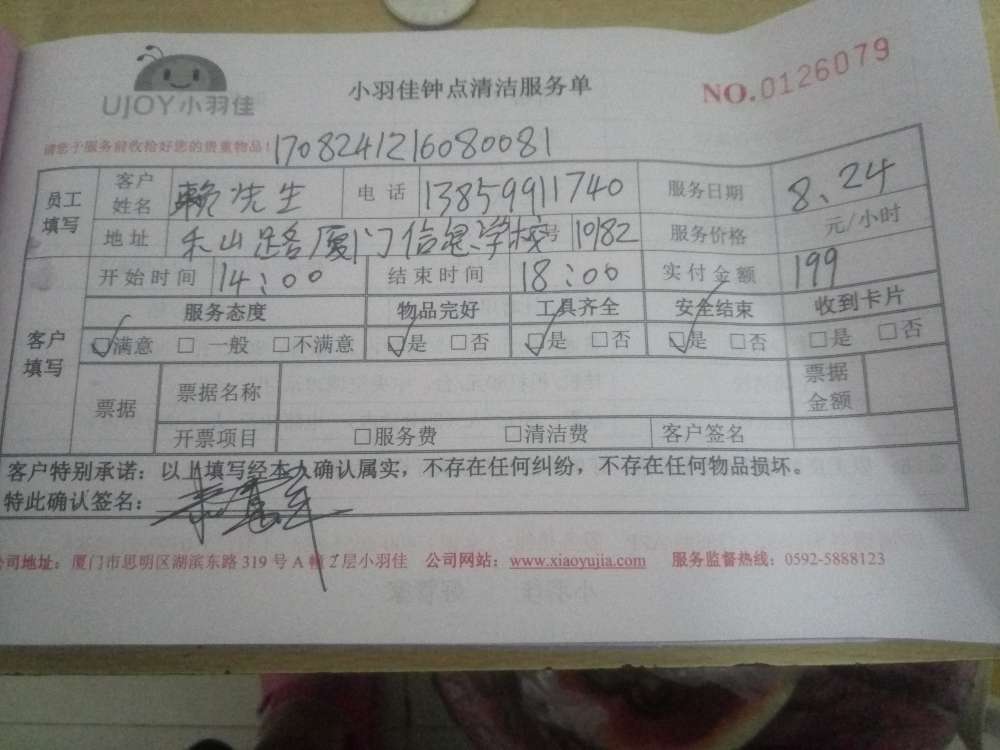 UJOY小羽佳
小羽佳钟点清洁服务单
NO.0126079
请您于服务前收拾好您的贵重物品! 1708241216080081
员工填写 客户姓名 赖先生 电话 13859911740 服务日期 8、24
地址 禾山路厦门信息学校 号 10182 服务价格 元/小时
客户填写 开始时间 14:00 结束时间 18:00 实付金额 199
服务态度 物品完好 工具齐全 安全结束 收到卡片
☑满意 □ 一般 □不满意 ☑是 □否 ☑是 □否 ☑是 □否 □是 □否
票据 票据名称 票据金额
开票项目 □服务费 □清洁费 客户签名
客户特别承诺：以上填写经本人确认属实，不存在任何纠纷，不存在任何物品损坏。
特此确认签名：
公司地址：厦门市思明区湖滨东路 319 号 A 幢 2 层小羽佳 公司网站：www.xiaoyujia.com 服务监督热线：0592-5888123